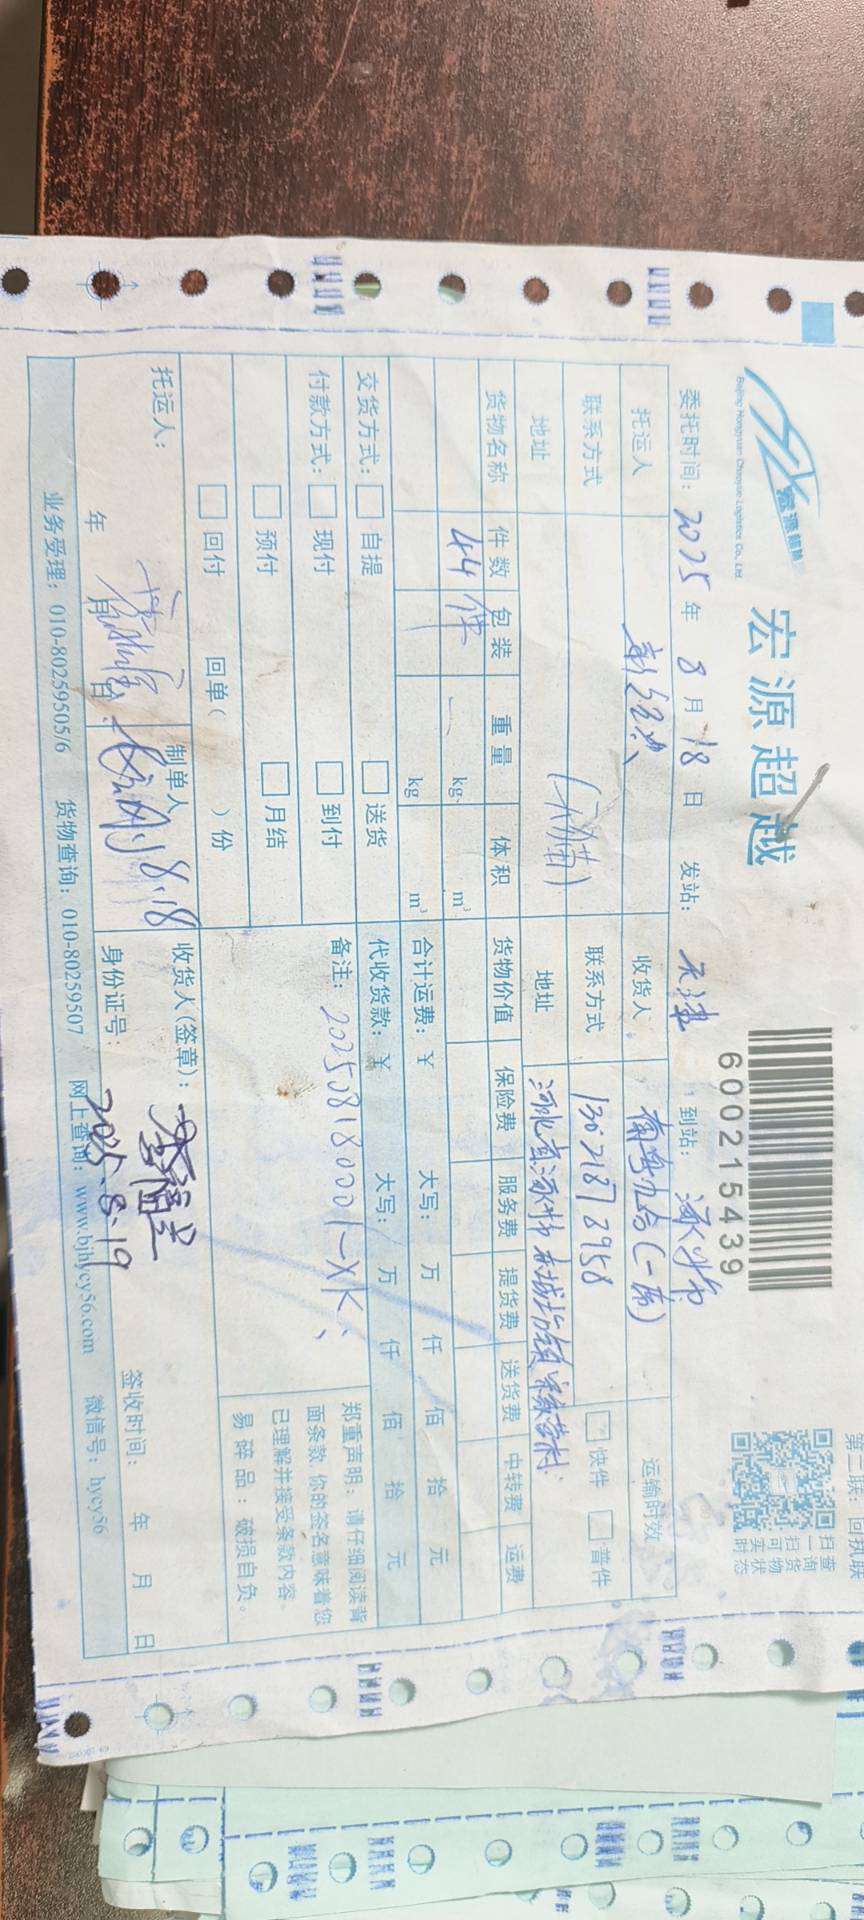 宏源超越
Beijing Hongyuan Chaoyue Logistics Co., Ltd.
600215439
第三联：回执联
扫一扫可实时
查询货物状态
委托时间：2025年8月18日 发站：天津 到站：涿州市
托运人 收货人 运输时效
联系方式 联系方式 13021878958 快件 普件
地址 (天津) 地址 河北省涿州市东城坊镇
货物名称 件数 包装 重量 体积 货物价值 保险费 服务费 提货费 送货费 中转费 运费
44件 kg m³
kg m³ 合计运费：¥ 大写： 万 仟 佰 拾 元
交货方式： 自提 送货 代收货款：¥ 大写： 万 仟 佰 拾 元
付款方式： 现付 到付 备注：202508180001-XK
预付 月结
回付 回单( )份
郑重声明：请仔细阅读背
面条款,你的签名意味着您
已理解并接受条款内容。
易碎品：破损自负。
托运人： 制单人 8.18 收货人(签章)：
年 月 日 身份证号： 2025.8.19 签收时间： 年 月 日
业务受理：010-80259505/6 货物查询：010-80259507 网上查询：www.bjhycy56.com 微信号：hycy56